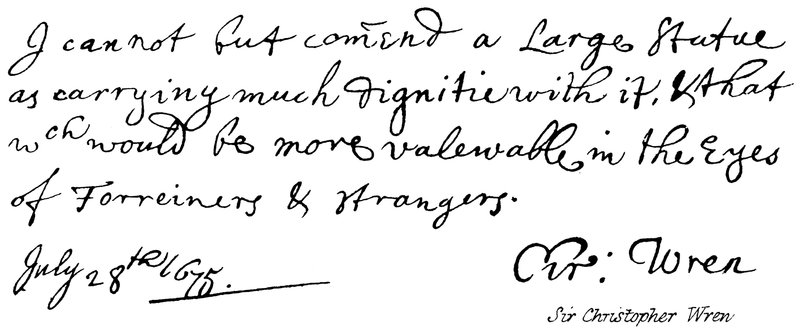 I cannot but com̄end a Large Statue
as carrying much dignitie with it, & that
wch would be more valewable in the Eyes
of Forreiners & strangers.
July 28th 1675.
Chr: Wren
Sir Christopher Wren